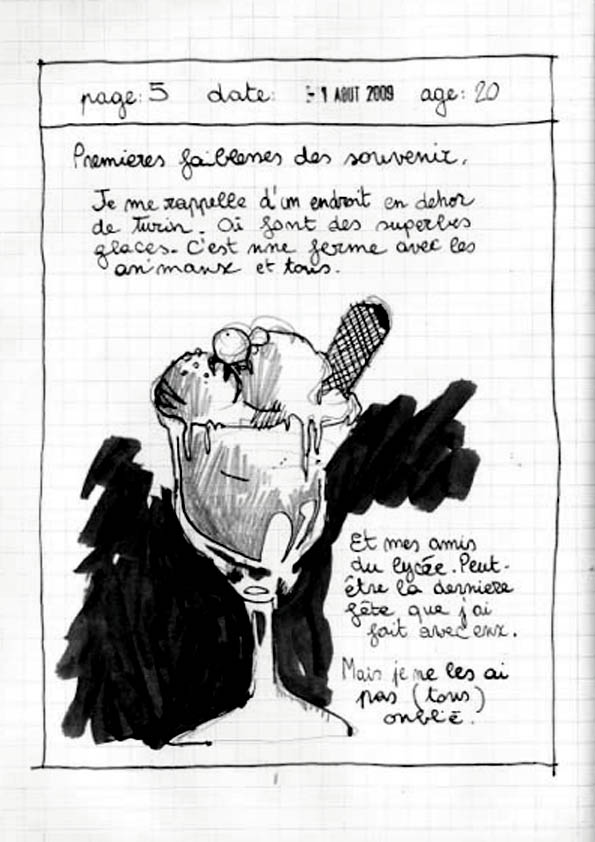 page: 5 date: - 1 AOUT 2009 age: 20
Premieres faiblesses des souvenir.
Je me rappelle d'un endroit en dehor
de Turin. Où font des superbes
glaces. C'est une ferme avec les
animaux et tous.
Et mes amis
du lycée. Peut-
être la derniere
fête que j'ai
fait avec eux.
Mais je ne les ai
pas (tous)
oublié.